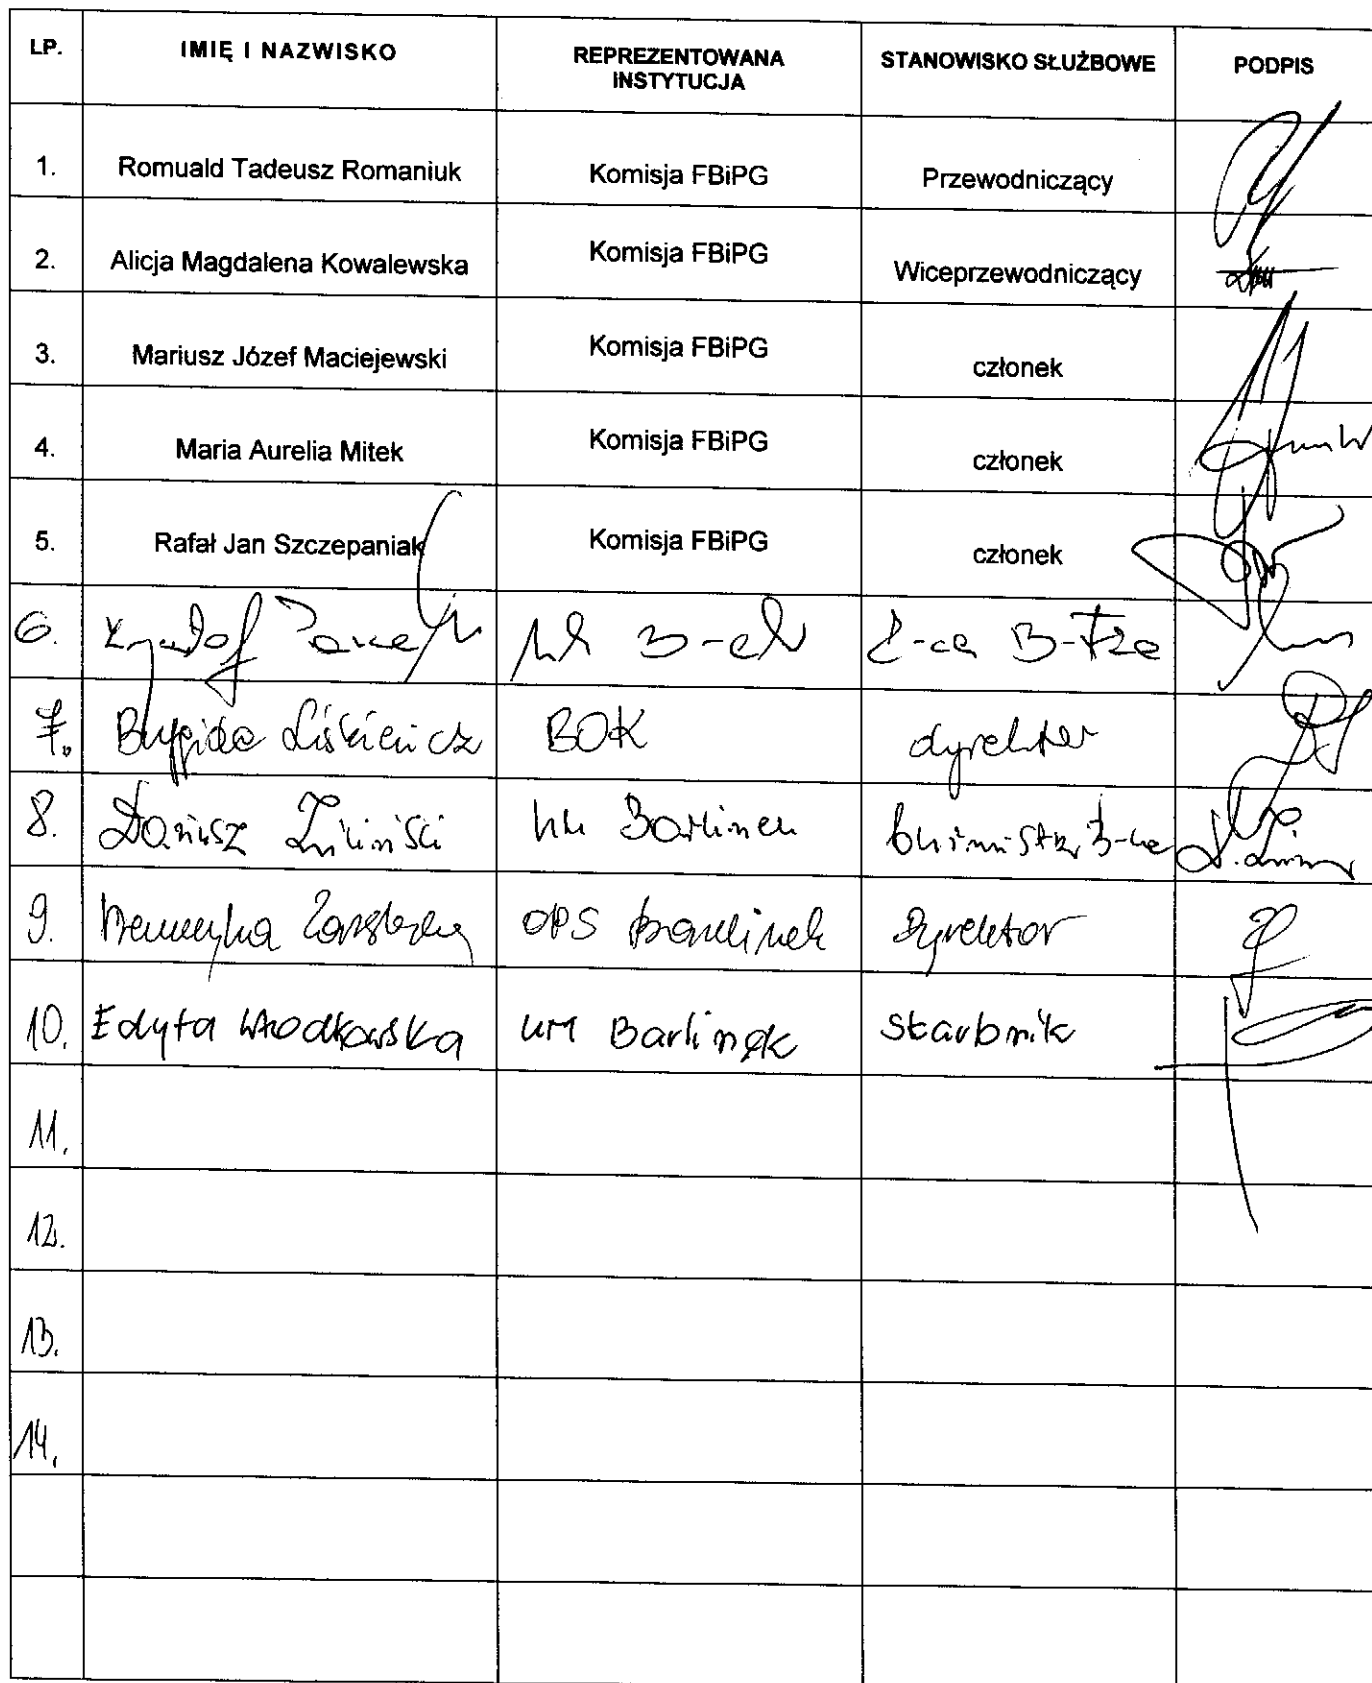 LP. IMIĘ I NAZWISKO REPREZENTOWANA INSTYTUCJA STANOWISKO SŁUŻBOWE PODPIS
1. Romuald Tadeusz Romaniuk Komisja FBiPG Przewodniczący
2. Alicja Magdalena Kowalewska Komisja FBiPG Wiceprzewodniczący
3. Mariusz Józef Maciejewski Komisja FBiPG członek
4. Maria Aurelia Mitek Komisja FBiPG członek
5. Rafał Jan Szczepaniak Komisja FBiPG członek
6. Z-ca B-rza
7. BOK dyrektor
8. Dariusz Zieliński UM Barlinek burmistrz B-ka
9. OPS Barlinek Dyrektor
10. Edyta UM Barlinek skarbnik
11.
12.
13.
14.